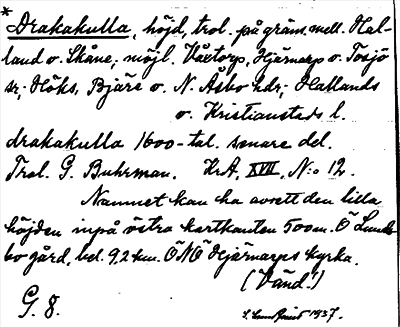 * Drakakulla, höjd, trol. på gräns. mell. Hal-
land o. Skåne; möjl. Våxtorp, Hjärnarp o. Tosjö
sr; Höks, Bjäre o. N. Åsbo hdr; Hallands
o. Kristianstads l.
drakakulla 1600-tal. senare del.
Trol. G. Buhrman. Kr.A. XVII. N:o 12.
Namnet kan ha avsett den lilla
höjden inpå östra kartkanten 500 m. Ö Lunde
bo gård, bel. 9,2 km. ÖNÖ Hjärnarps kyrka.
(Vänd!)
G. 8.
1937.